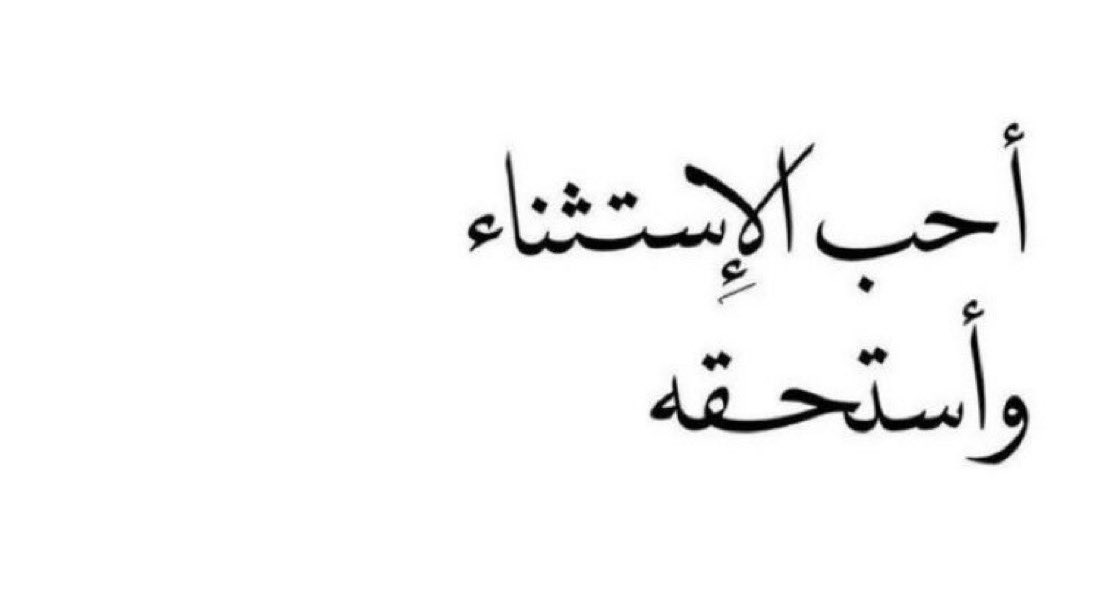 أحب الإِستثناء
وأستحقه